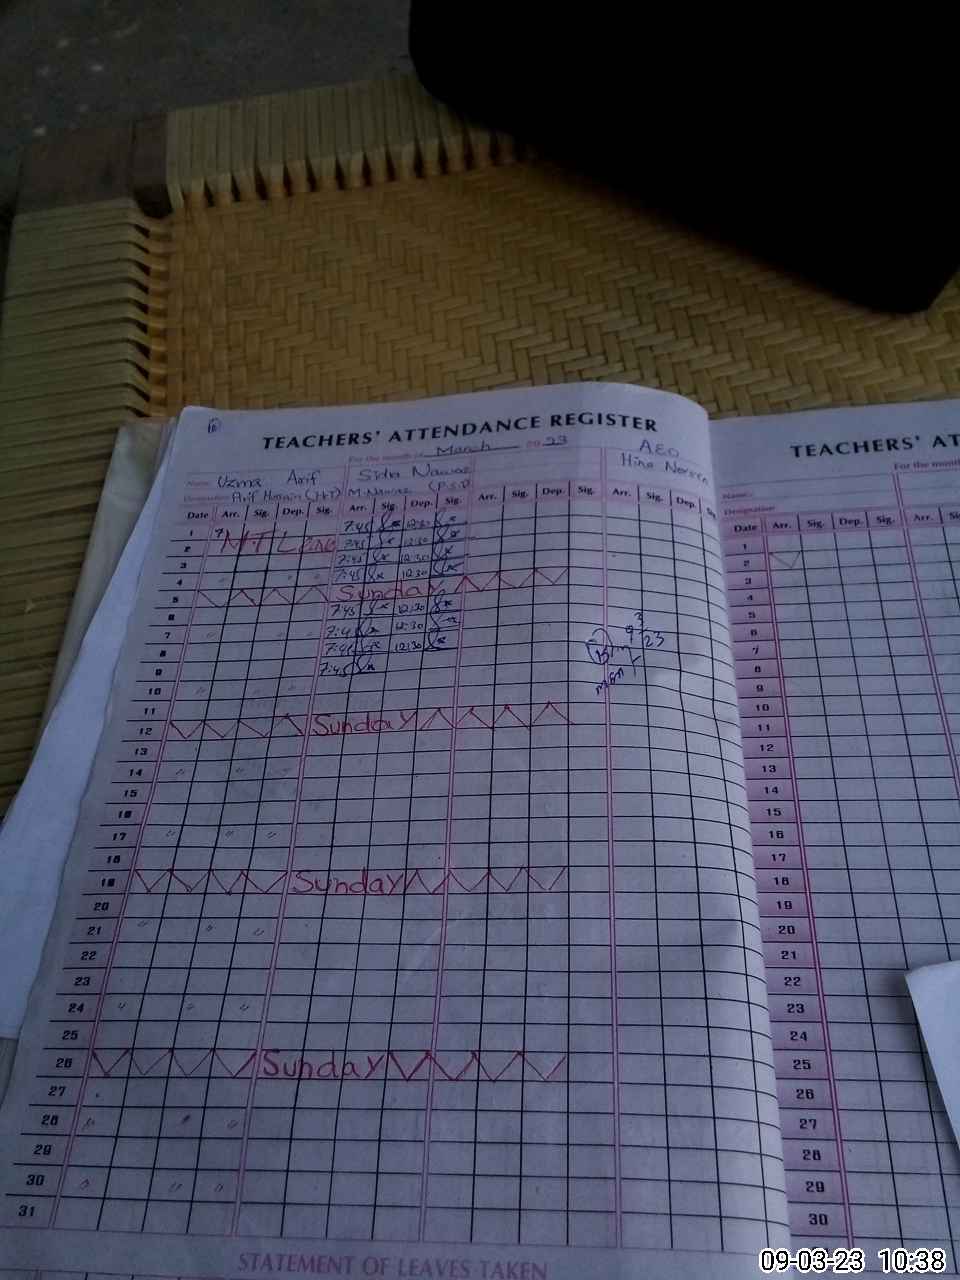 TEACHERS' ATTENDANCE REGISTER
For the month of March 2023
AEO
Name: Uzma Arif Sidra Nawaz Hina
Designation Arif Hussain (H.T) M. Nawaz (P.S.T)
Date Arr. Sig. Dep. Sig. Arr. Sig. Dep. Sig. Arr. Sig. Dep. Sig.
1 7:45 12:30
2 7:45 12:30
3 7:45 12:30
4 7:45 12:30
5 Sunday
6 7:45 12:30
7 12:30
8 12:30
9 7:45
10
11
12 Sunday
13
14
15
16
17
18
19 Sunday
20
21
22
23
24
25
26 Sunday
27
28
29
30
31
STATEMENT OF LEAVES TAKEN
TEACHERS' AT
For the month
Name:
Designation
Date Arr. Sig. Dep. Sig. Arr.
1
2
3
4
5
6
7
8
9
10
11
12
13
14
15
16
17
18
19
20
21
22
23
24
25
26
27
28
29
30
09-03-23 10:38